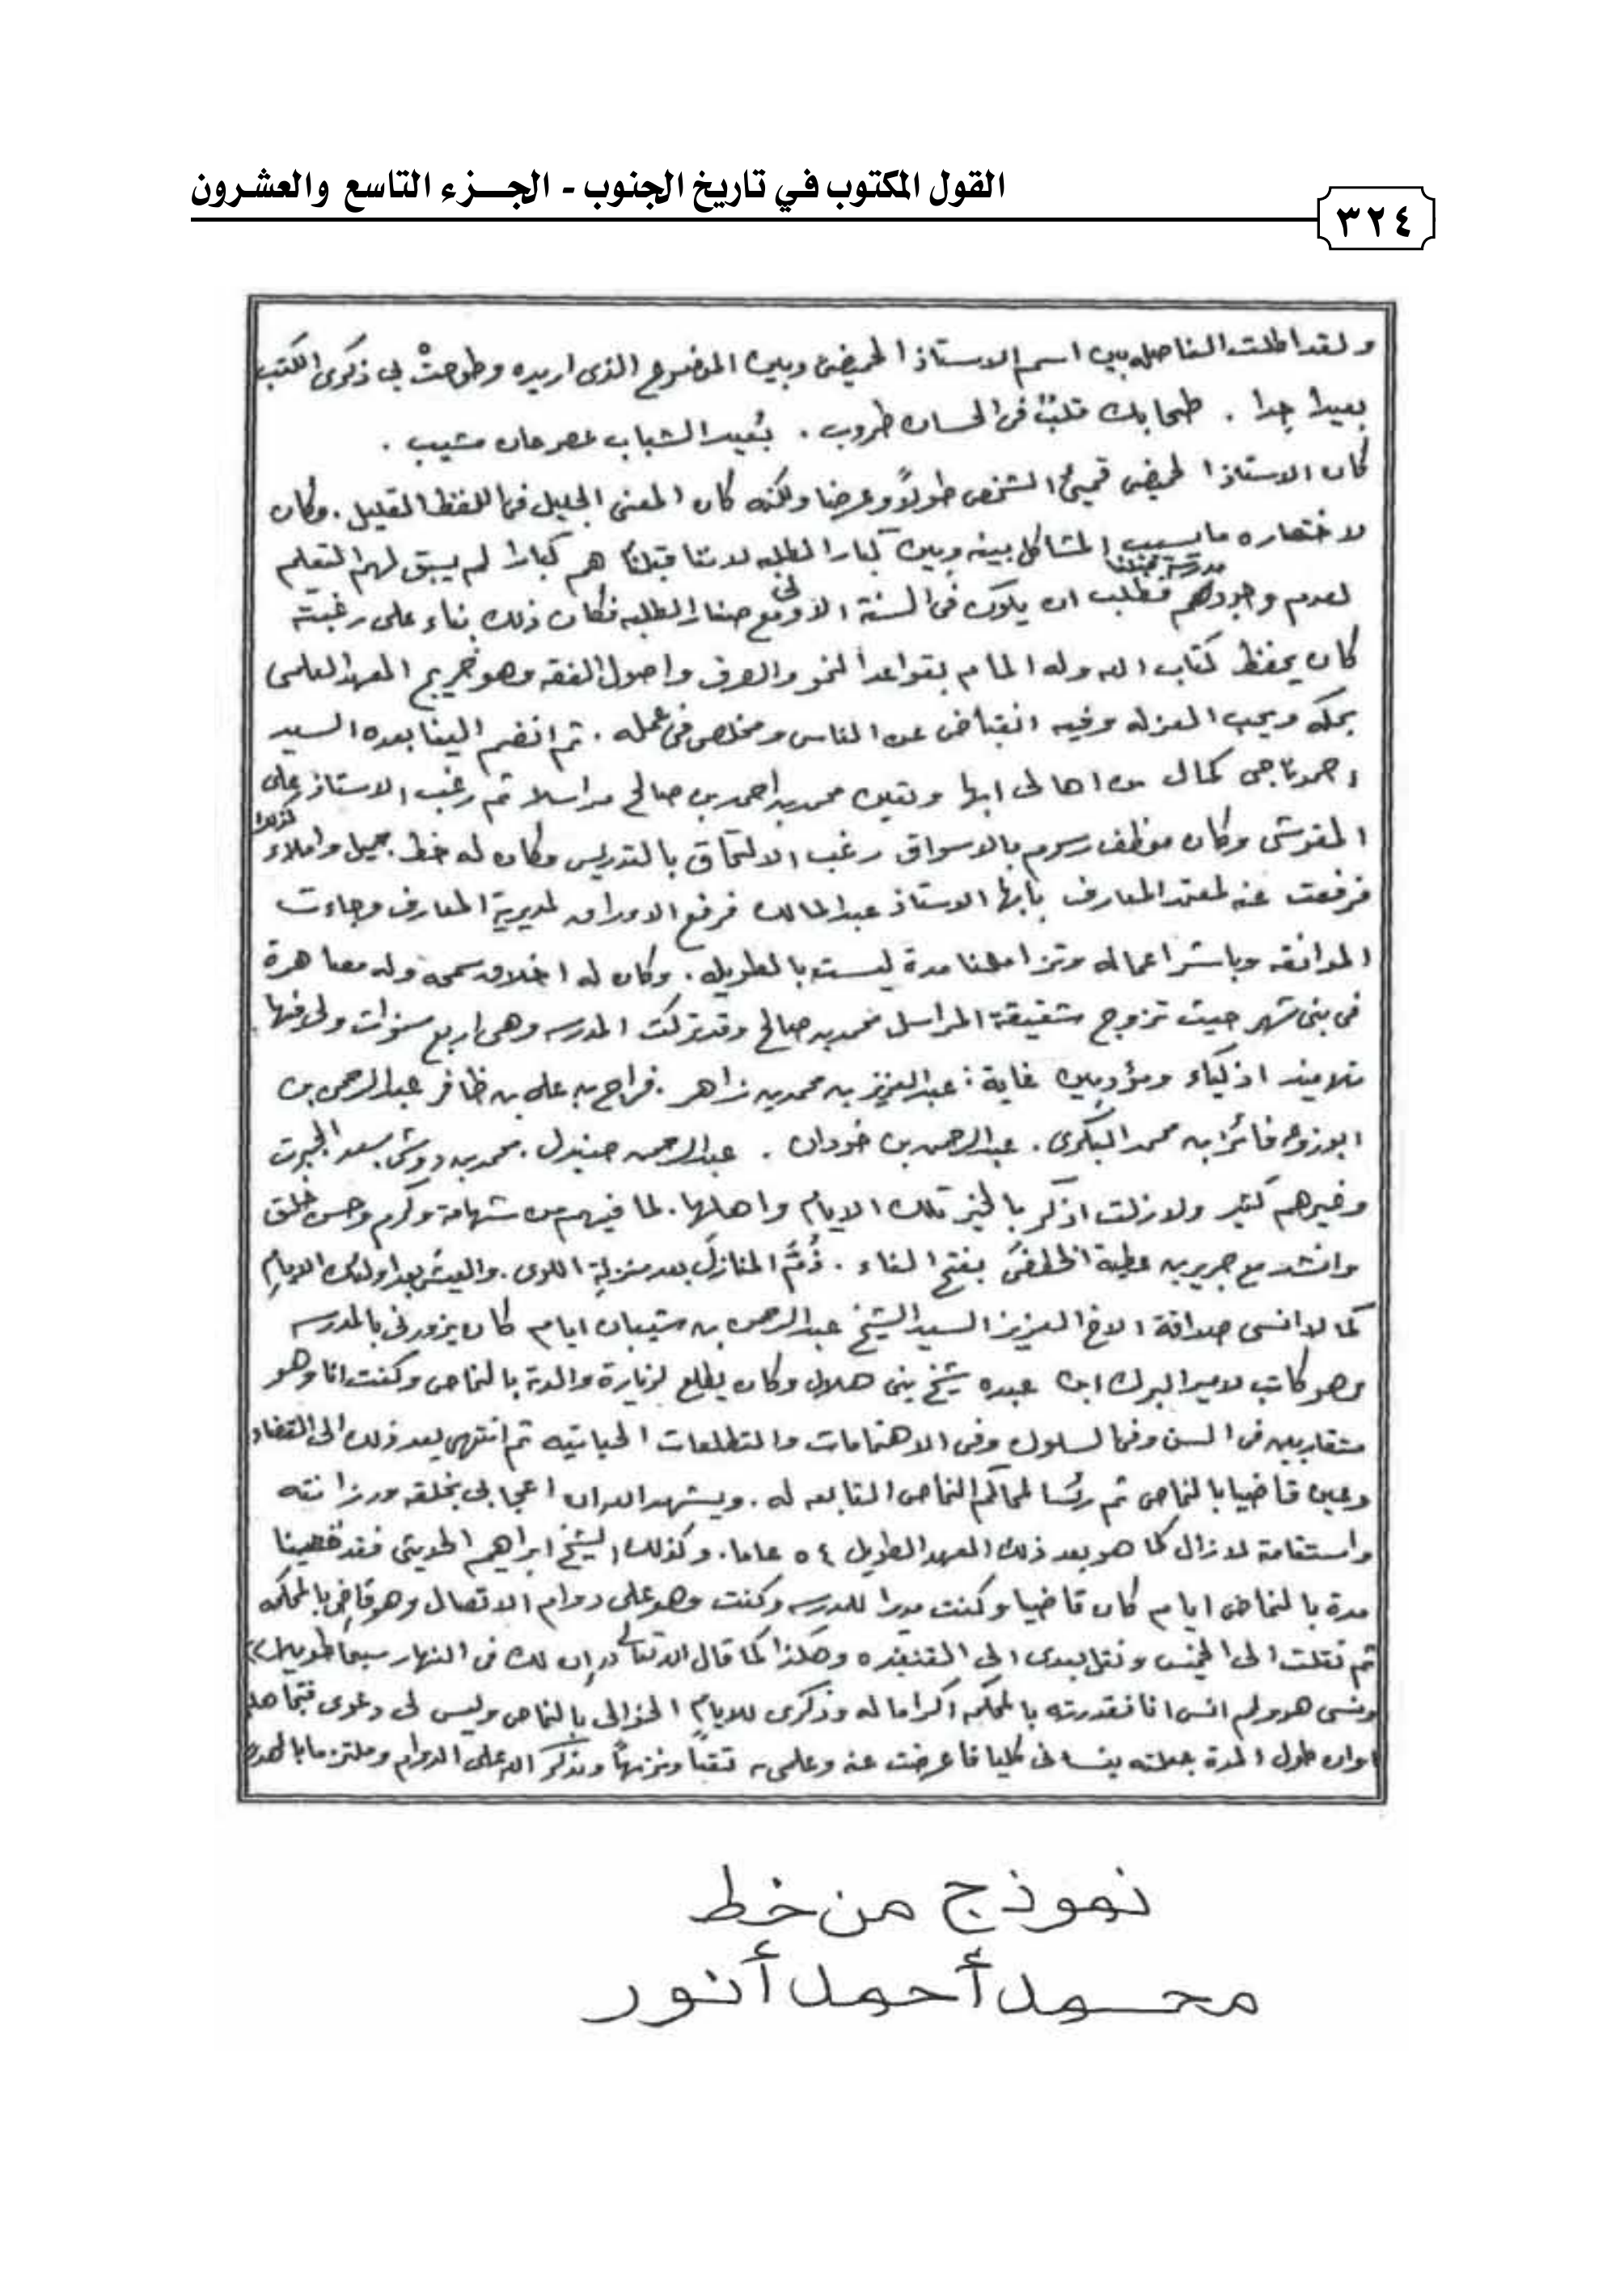 القول المكتوب في تاريخ الجنوب - الجـــزء التاسع والعشرون
٣٢٤
ولقد اطلت الفاصله بين اسم الاستاذ الحميضي وبين الموضوع الذى اريده وطوحتْ بي ذكرى الكتب
بعيدا جدا . طحا بك قلبٌ فى الحسان طروب . بُعيد الشباب عصر حان مشيب .
كان الاستاذ الحميضى قميئُ الشخص طولاً وعرضا ولكنه كان المعنى الجليل فى اللفظ القليل . وكان
لاختصاره ما يسبب المشاكل بينه وبين كبار الطلبه لاننا قبلنا هم كبارا لم يسبق لهم التعليم
لعدم وجود مدرسة قبلنا فطلب ان يكون فى السنة الاولى مع صغار الطلبه فكان ذلك بناء على رغبته
كان يحفظ كتاب الله وله المام بقواعد النحو والصرف واصول الفقه وهو خريج المعهد العلمى
بمكه ويحب العزله وفيه انقباض عن الناس ومخلص فى عمله . ثم انضم الينا بعده السيد
احمد ناجى كمال من اهالى ابها وتعين محمد بن احمد بن صالح مراسلا ثم رغب الاستاذ على
المقوشى وكان موظف رسوم بالاسواق رغب الالتحاق بالتدريس وكان له خط جميل واملاء كذلك
فرفعت عنه لمعتمد المعارف بابها الاستاذ عبد المالك فرفع الاوراق لمديرية المعارف وجاءت
الموافقه وباشر اعماله وتزاملنا مدة ليست بالطويله . وكان له اخلاق سمحه وله مصاهرة
فى بنى شهر حيث تزوج شقيقة المراسل محمد بن صالح وقد تركت المدرسه وهى اربع سنوات ولى فيها
تلاميذ اذكياء ومؤدبين غاية : عبد العزيز بن محمد بن زاهر . فراج بن على بن ظافر عبد الرحمن بن
فائز ابن محمد البكرى . عبد الرحمن بن خودان . عبد الرحمن صندل . محمد بن سعد
وغيرهم كثير ولا زلت اذكر بالخير تلك الايام واهلها . لما فيهم من شهامة وكرم وحسن خلق
وانشد مع جرير بن عطية الخطفىَ بفتح الفاء . ذُمَّ المنازلَ بعد منزلةِ اللوى . والعيش بعد اولئك الايامِ
كما لا انسى صداقة الاخ العزيز السيد الشيخ عبد الرحمن بن شيبان ايام كان يزورنى بالمدرسه
وهو كاتب لامير البرك ابن عبده شيخ بنى هلال وكان يطلع لزيارة والدة بالنماص وكنت انا وهو
متقاربين فى السن وفى السلوك وفى الاهتمامات والتطلعات الحياتيه ثم انتهى بعد ذلك الى القضاء
وعين قاضيا بالنماص ثم رئسا لمحاكم النماص التابعه له . ويشهد الله ان اعجابى بخلقه ورزانته
واستقامة لا زال كما هو بعد ذلك العهد الطويل ٥٤ عاما . وكذلك الشيخ ابراهيم فقد قضينا
مدة بالنماص ايام كان قاضيا وكنت مديرا للمدرسه وكنت وهو على دوام الاتصال وهو قاضٍ بالمحكمه
ثم نقلت الى الخميس ونقل بعدى الى القنفذه وهكذا كما قال الله تعالى (( ان لك فى النهار سبحا طويلا ))
ونسى هو ولم انس انا فقد زرته بالمحكمه اكراما له وذكرى للايام الخوالى بالنماص وليس لى دعوى
وان طول المدة جعلته ينسانى كليا فاعرضت عنه وعلمى به تقياً ونزيهاً ويذكر الله على الدوام وملتزما
نموذج من خط
محمد أحمد أنور